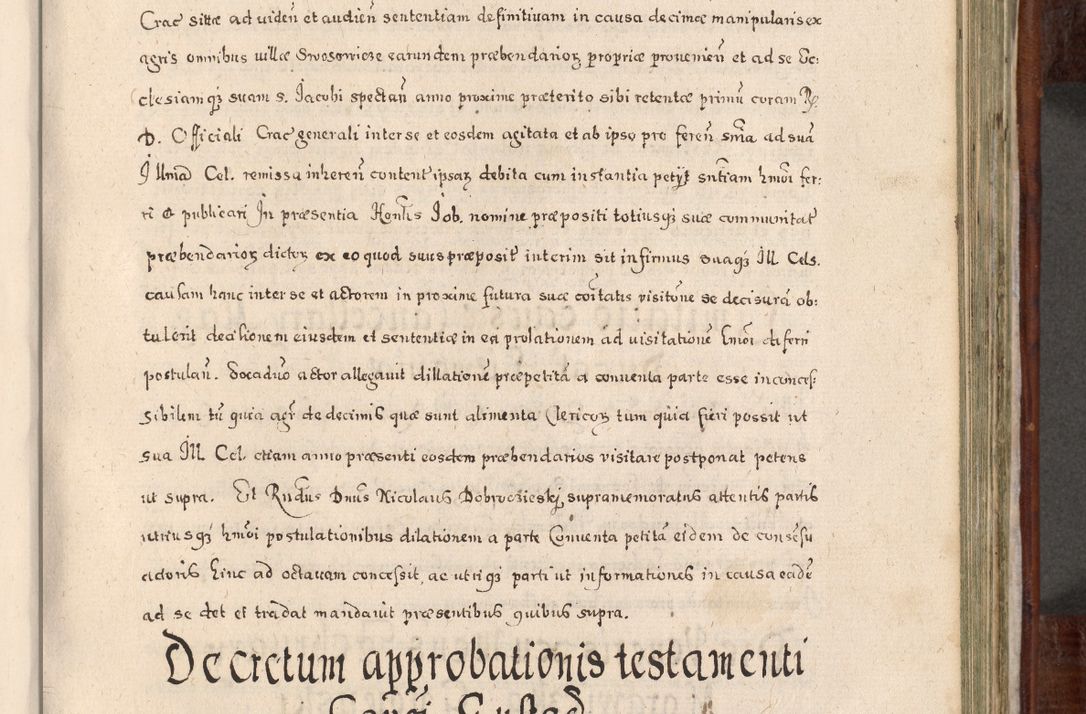 Crac̄ sitæ ad videñ et audieñ sententiam definitiuam in causa decimæ manipularis ex
agris omnibus uillæ Swosowicze earundem præbendarioꝝ propriæ prouenieñ et ad se Ec:
clesiamqꝫ suam s. Jacobi spectañ anno proxime præterito sibi retentæ primū coram R.
D. Officiali Crac̄ generali inter se et eosdem agitata et ab ipso pro fereñ snīa ad suā
Illmā Cel. remissa inhereñ content̄ ipsaꝝ debita cum instantia petijt sntīam hmōi fer:
ri & publicari In præsentia Hontīs Job. nomine præpositi totiusqꝫ suæ communitat̄
præbendarioꝝ dictoꝝ ex eo quod suus præposit̄ interim sit infirmus suaqꝫ Ill Cels.
causam hanc inter se et actorem in proxime futura suæ coītatis visitōne se decisurā ob:
tulerit decisionem eiusdem et sententiæ in ea prolationem ad uisitationē hmōi differri
postulaū. Ex aduō actor allegauit dillationē præpetitā a conuenta parte esse inconces:
sibilem tū quia agr̄ de decimis quæ sunt alimenta Clericoꝝ tum quia fieri possit ut
sua Ill Cel etiam anno præsenti eosdem præbendarios visitare postponat petens
ut supra. Et Rndūs Dnūs Nicolaus Dobrocieskj supramemoratus attentis partis
utriusqꝫ hmōi postulationibus dilationem a parte Conuenta petitā eidem de consēsu
actoris hinc ad octauam concessit, ac utriqꝫ parti ut informationes in causa eadē
ad se det et tradat mandauit præsentibus quibus supra.
Decretum approbationis testamenti